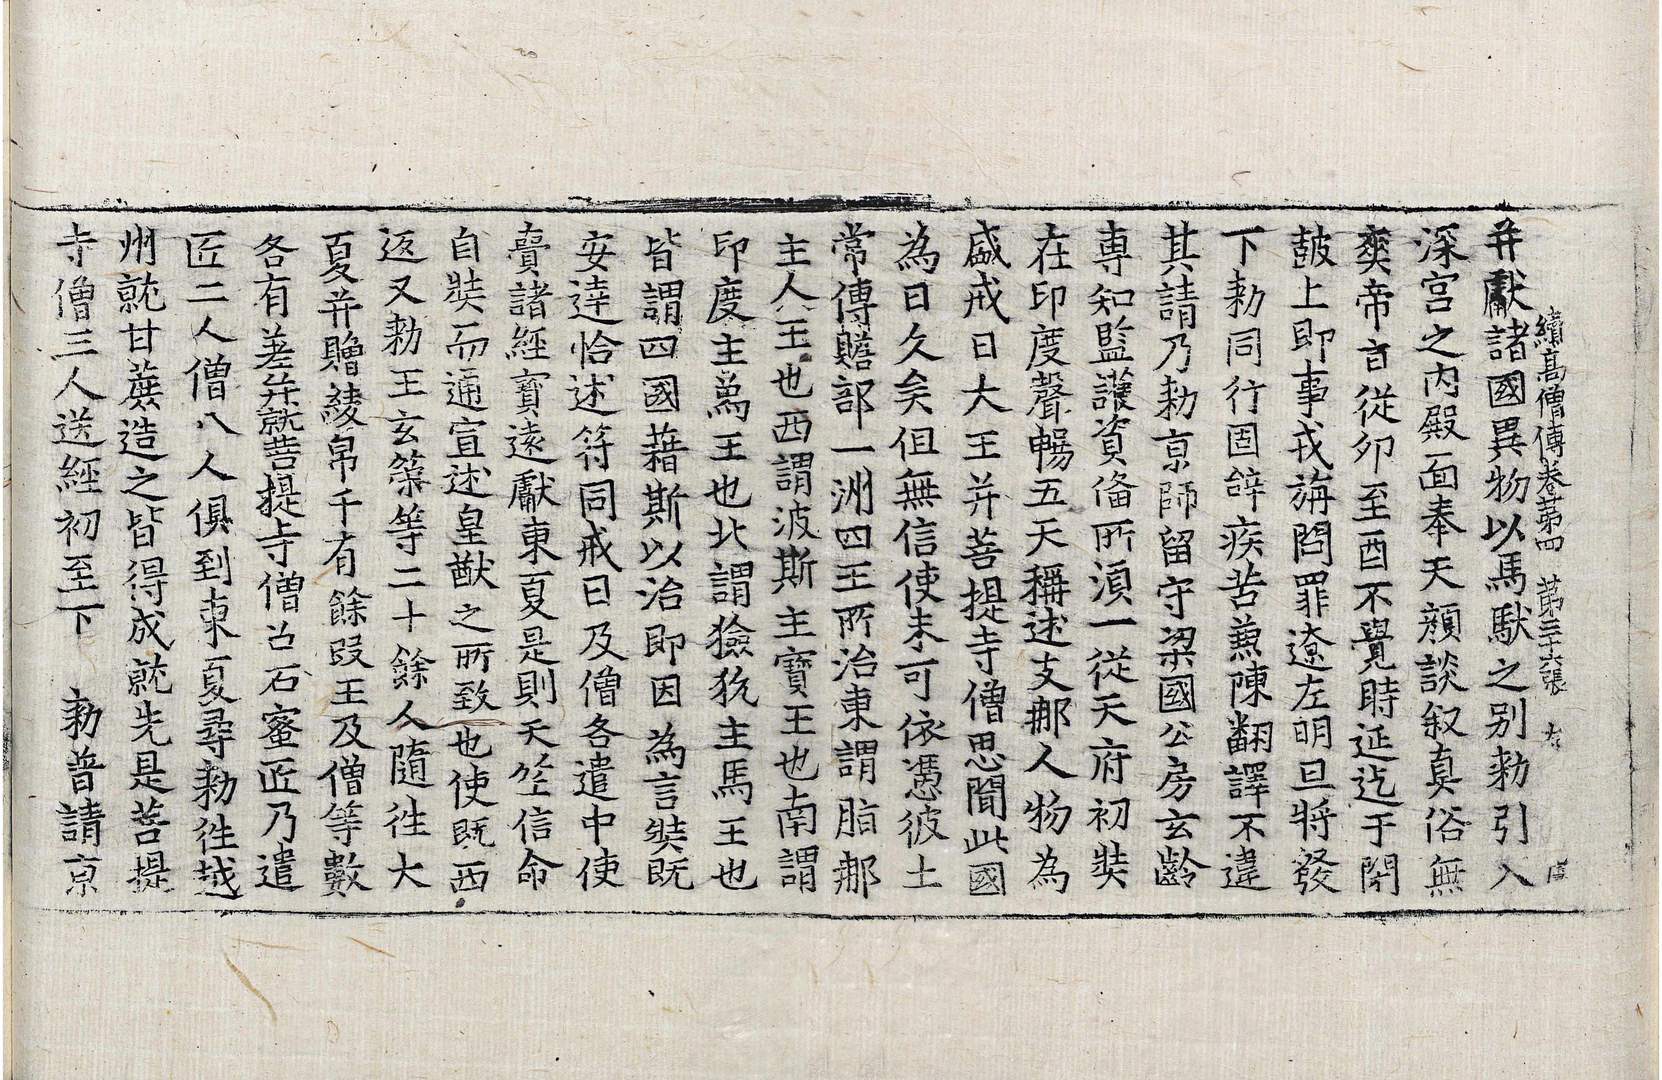 續高僧傳卷第四 第三十六張 左
并獻諸國異物以馬馱之別勑引入
深宮之內殿面奉天顔談叙真俗無
爽帝旨從卯至酉不覺時延迄于閇
皷上即事戎旃問罪遼左明旦將發
下勑同行固辝疾苦兼陳翻譯不違
其請乃勑京師留守梁國公房玄齡
專知監護資俻所湏一從天府初奘
在印度聲暢五天稱述支那人物為
盛戒日大王并菩提寺僧思聞此國
為日久矣但無信使未可依憑彼土
常傳贍部一洲四王所治東謂脂那
主人王也西謂波斯主寶王也南謂
印度主爲王也北謂獫狁主馬王也
皆謂四國藉斯以治即因為言奘既
安達恰述符同戒日及僧各遣中使
賷諸經寶遠獻東夏是則天竺信命
自奘而通宣述皇猷之所致也使既西
返又勑王玄策等二十餘人隨往大
夏并贈綾帛千有餘段王及僧等數
各有差并就菩提寺僧召石蜜匠乃遣
匠二人僧八人俱到東夏尋勑往越
州就甘蔗造之皆得成就先是菩提
寺僧三人送經初至下 勑普請京